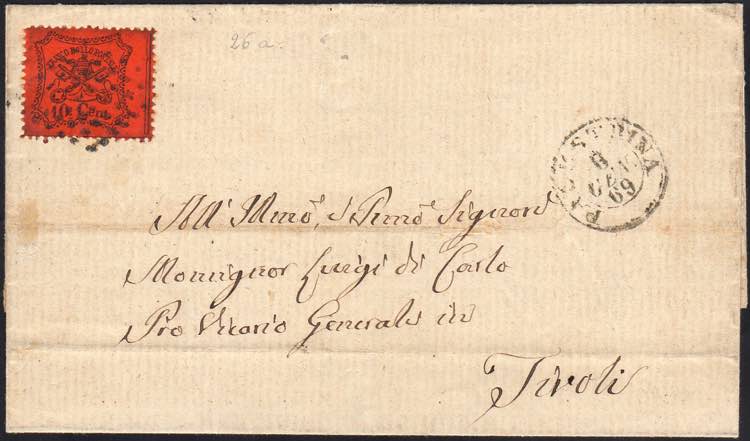 26 a.
FRANCO BOLLO POSTALE
10 Cent
PALESTRINA
6
GEN
69
All' Illmõ, e Rmõ Signore
Monsignor Luigi di Carlo
Pro Vicario Generale in
Tivoli